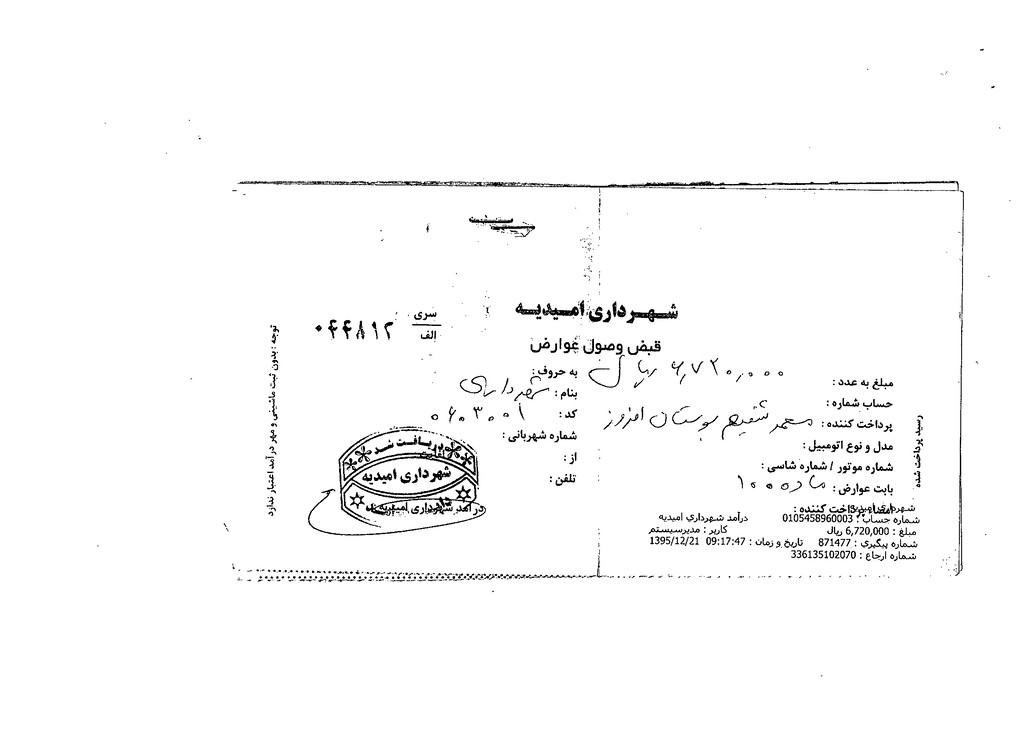 شهرداری امیدیه
قبض وصول عوارض
سری
الف
۰۴۴۸۱۲
مبلغ به عدد : ۶,۷۲۰,۰۰۰ ریال
به حروف :
حساب شماره :
بنام : شهرداری
پرداخت کننده : محمد شفیع بوستان افروز
کد : ۰۶۰۳۰۰۱
مدل و نوع اتومبیل :
شماره شهربانی :
شماره موتور / شماره شاسی :
از :
بابت عوارض : ماده ۱۰۰
تلفن :
امضاء پرداخت کننده :
شهرداری امیدیه
شماره حساب : 0105458960003 درآمد شهرداری امیدیه
مبلغ : 6,720,000 ریال کاربر : مدیرسیستم
شماره پیگیری : 871477 تاریخ و زمان : 09:17:47 1395/12/21
شماره ارجاع : 336135102070
رسید پرداخت شده
دریافت شد
شهرداری امیدیه
درآمد شهرداری امیدیه
توجه : بدون ثبت ماشینی و مهر درآمد اعتبار ندارد